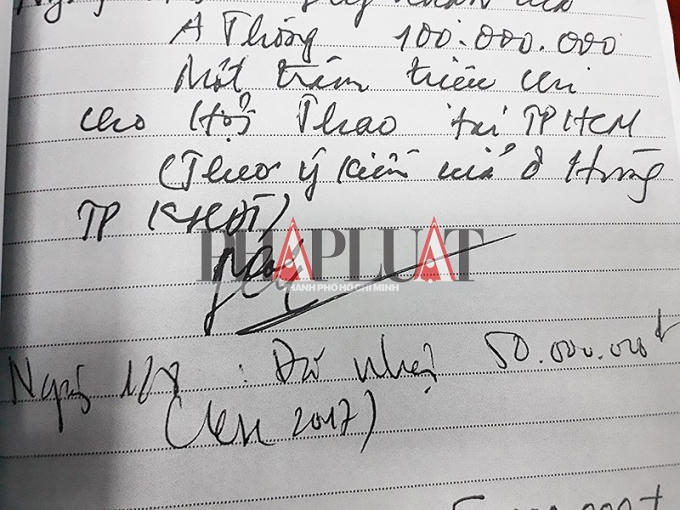 A Thông 100.000.000
Một trăm triệu chi
cho Hội Thao tại TP HCM
(Theo ý kiến của ô Hùng
TP KHĐT)
PHÁP LUẬT
THÀNH PHỐ HỒ CHÍ MINH
Ngày 1/8 : Đã nhận 50.000.000đ
(2017)